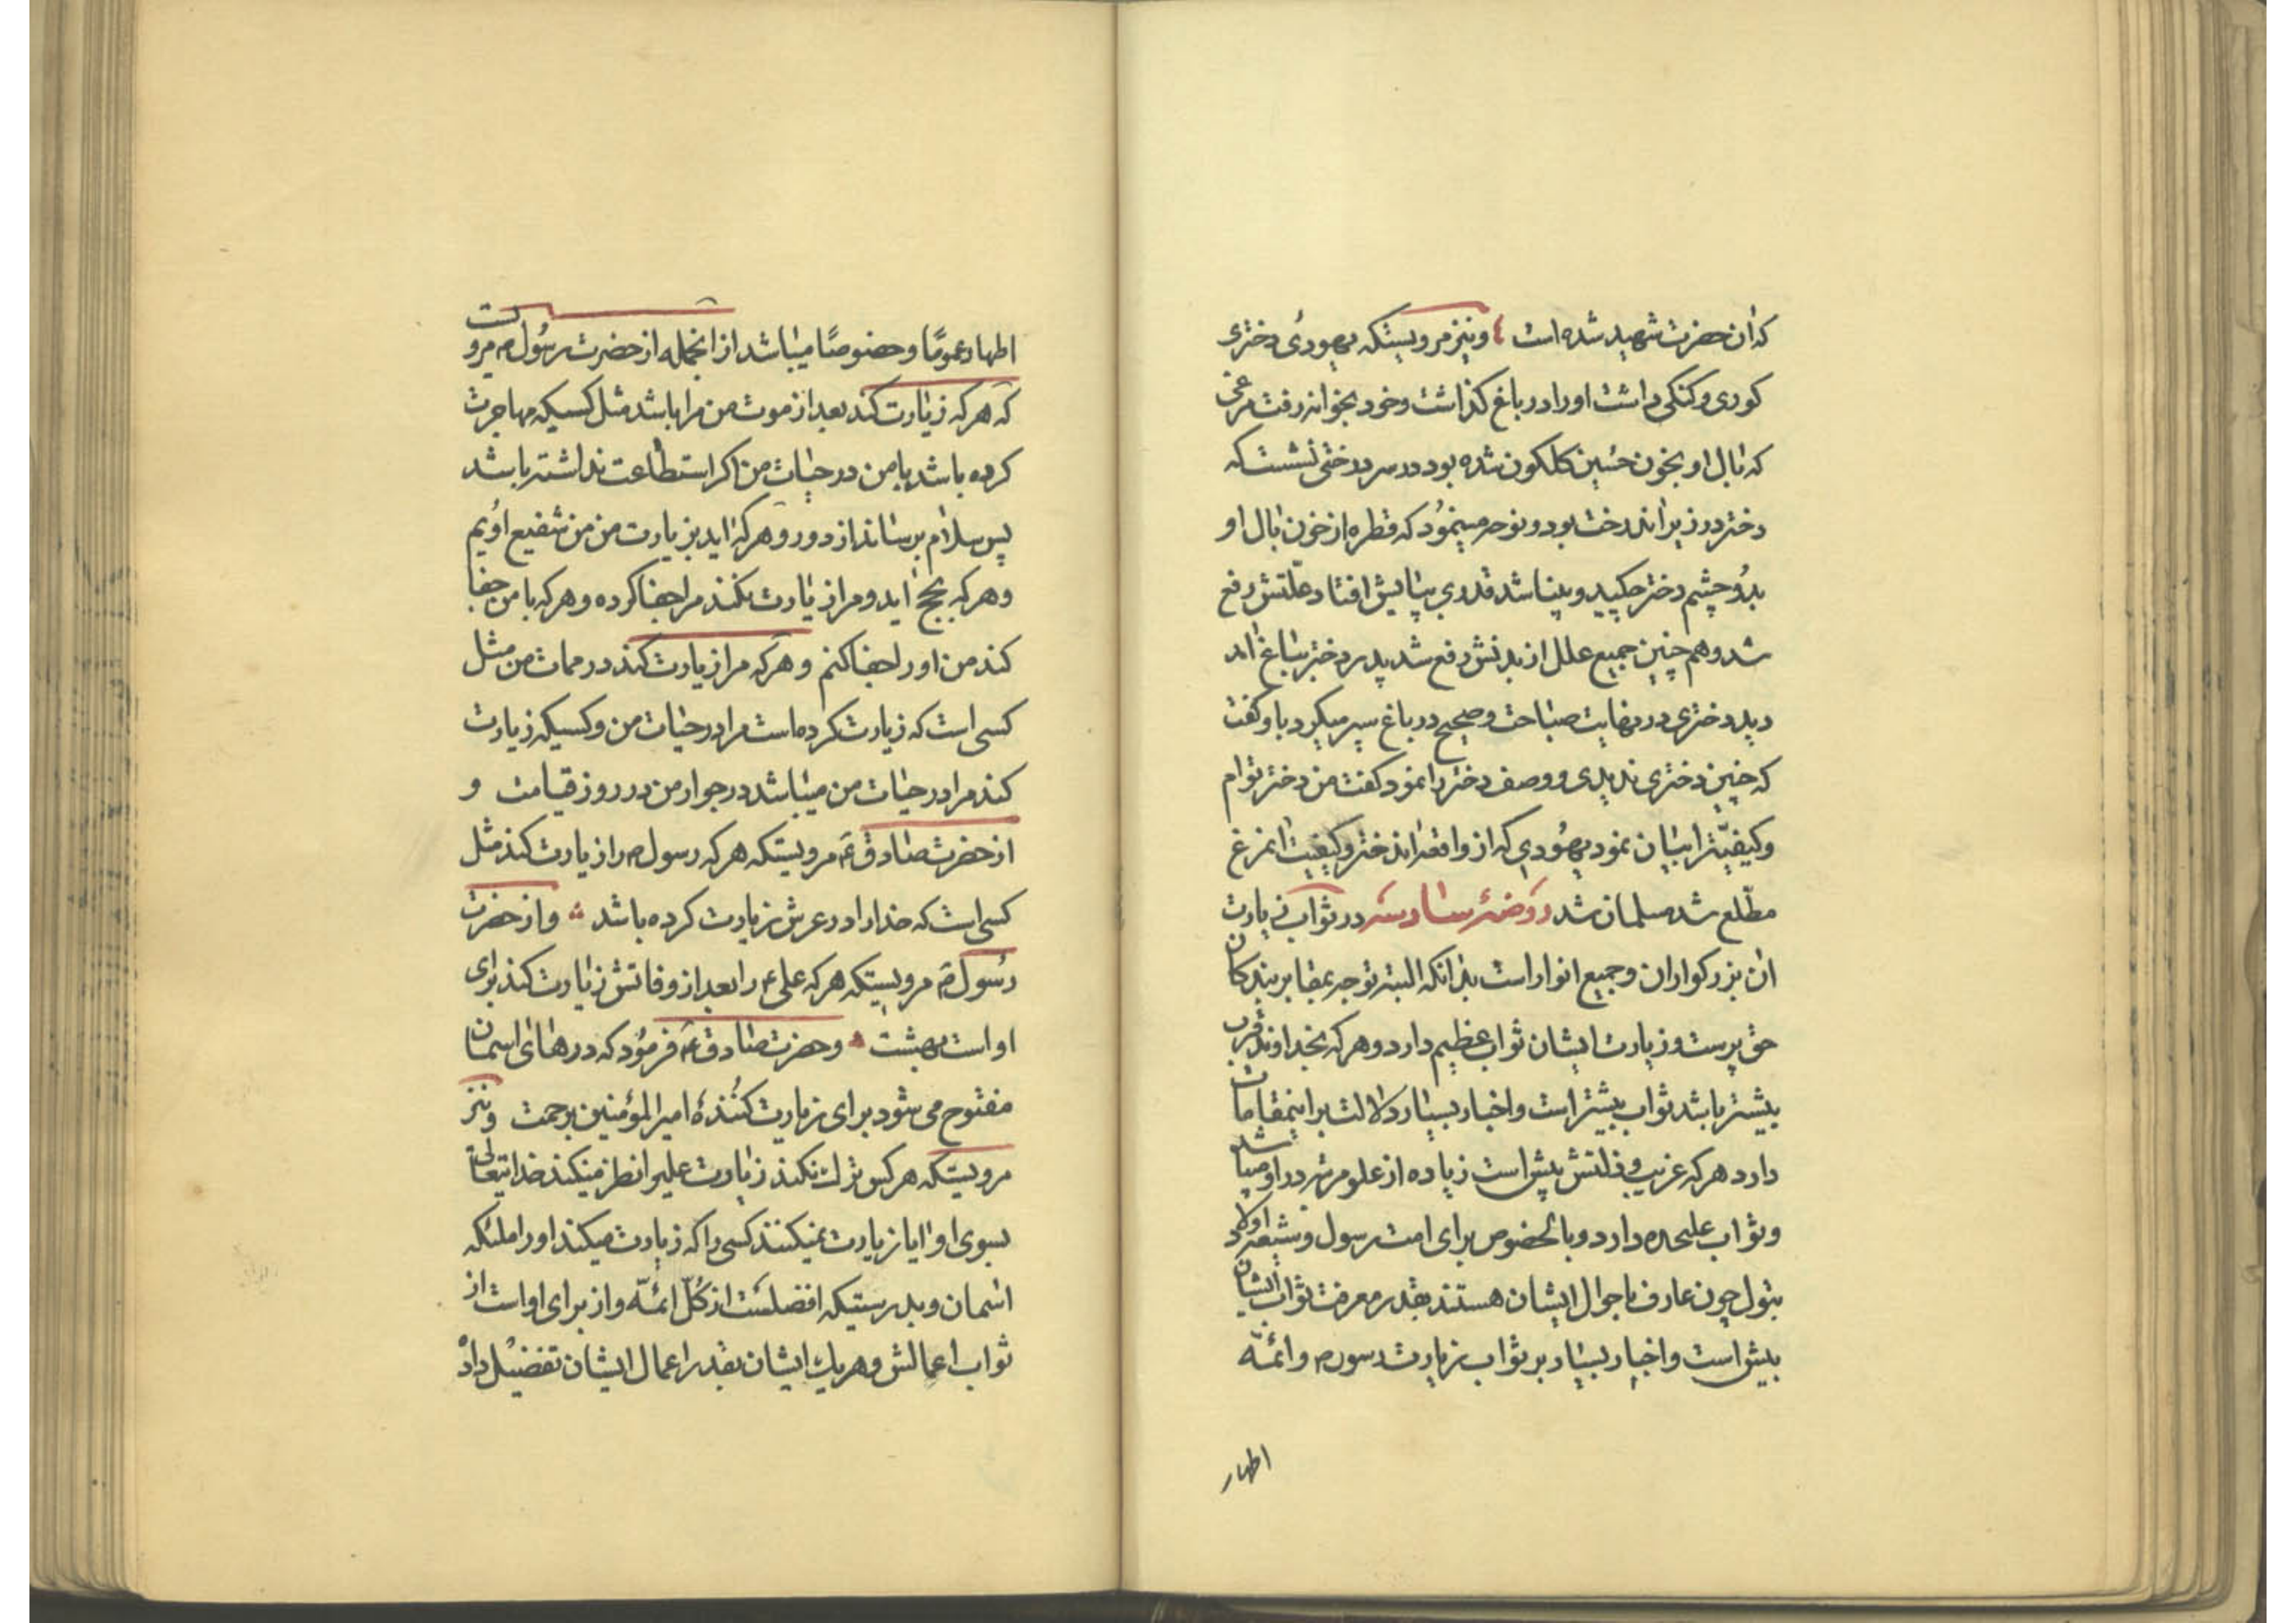 که آن حضرت شهید شده است ٤ و نیز مرویستکه یهودی دختری
کوری و کنکی داشت او را در باغ کذاشت و خود بخوانه رفت مرغی
که بال او بخون حسین کلکون شده بود در سر درختی نشست که
دختر در زیر آندرخت بود و نوحه مینمود که قطره از خون بال او
بدو چشم دختر چکید و بینا شد قدری بپایش افتاد علتش رفع
شد و هم چنین جمیع علل از بدنش رفع شد پدر دختر بباغ آمد
دید دختری در نهایت صباحت و صحیح در باغ سیر میکرد باو کفت
که چنین دختری ندیدی و وصف دختر را نمود کفت من دختر توام
و کیفیّت را بیان نمود یهودی که از واقعه اندختر و کیفیت انمرغ
مطّلع شد مسلمان شد روضهٔ سادسه در ثواب زیارت
آن بزرکواران و جمیع انوار است بدانکه البته توجه بمقابر بندکان
حق پرست و زیارت ایشان ثواب عظیم دارد و هر که بخداوند قرب
بیشتر باشد ثواب بیشتر است و اخبار بسیار دلالت بر اینمقامات
دارد هر که غریب و ذلتش بیش است زیاده از علو مرتبه در اوصیا باشد
و ثواب علیحده دارد و بالخصوص برای امت رسول و شیعه اولاد
بتول چون عارف باحوال ایشان هستند بقدر معرفت ثواب ایشان
بیش است و اخبار بسیار بر ثواب زیارت رسول م و ائمّه
اطهار
اطهار عمومًا و خصوصًا میباشد از انجمله از حضرت رسول م مرویست
که هر که زیارت کند بعد از موت من مرا باشد مثل کسیکه مهاجرت
کرده باشد با من در حیات من اکر استطاعت نداشته باشد
پس سلام برساند از دور و هر که اید بزیارت من من شفیع اویم
و هر که بحج اید و مرا زیارت نکند مرا جفا کرده و هر که با من جفا
کند من او را جفا کنم و هر که مرا زیارت کند در ممات من مثل
کسی است که زیارت کرده است مرا در حیات من و کسیکه زیارت
کند مرا در حیات من میباشد در جوار من در روز قیامت و
از حضرت صادق ع مرویستکه هر که رسول م را زیارت کند مثل
کسی است که خدا را در عرش زیارت کرده باشد و از حضرت
رسول م مرویستکه هر که علی ع را بعد از وفاتش زیارت کند برای
او است بهشت و حضرت صادق ع فرمود که درهای اسمان
مفتوح می شود برای زیارت کنندهٔ امیر المؤمنین برحمت و نیز
مرویستکه هر کس ترک نکند زیارت علیرا نظر میکند خدایتعالی
بسوی او ایا زیارت نمیکنند کسی را که زیارت میکند او را ملئکه
اسمان و بدرستیکه افضلست از کلّ ائمّه و از برای او است از
ثواب اعمالش و هر یک ایشان بقدر اعمال ایشان تفضیل داد